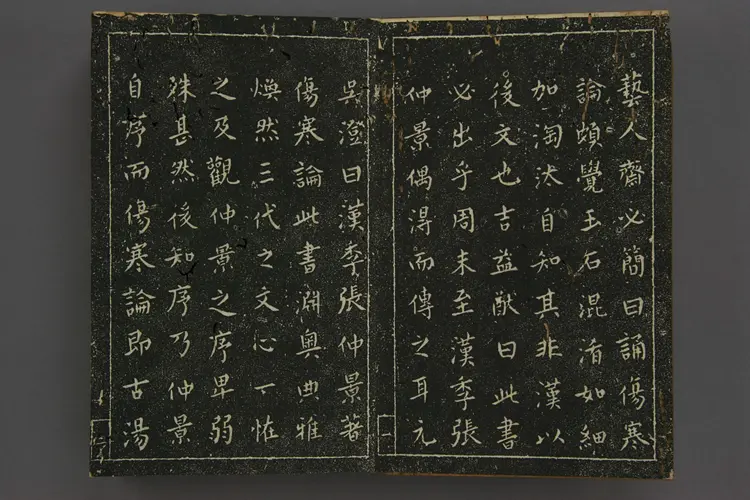 藝人齋必簡曰誦傷寒
論頗覺玉石混淆如細
加淘汰自知其非漢以
後文也吉益猷曰此書
必出乎周末至漢季張
仲景偶得而傳之耳元
吳澄曰漢季張仲景著
傷寒論此書淵奧典雅
煥然三代之文心一恠
之及觀仲景之序卑弱
殊甚然後知序乃仲景
自序而傷寒論即古湯